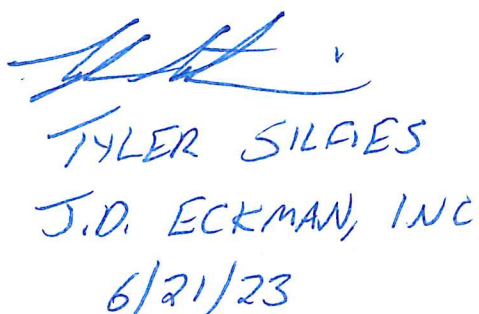 TYLER SILFIES
J.D. ECKMAN, INC
6/21/23